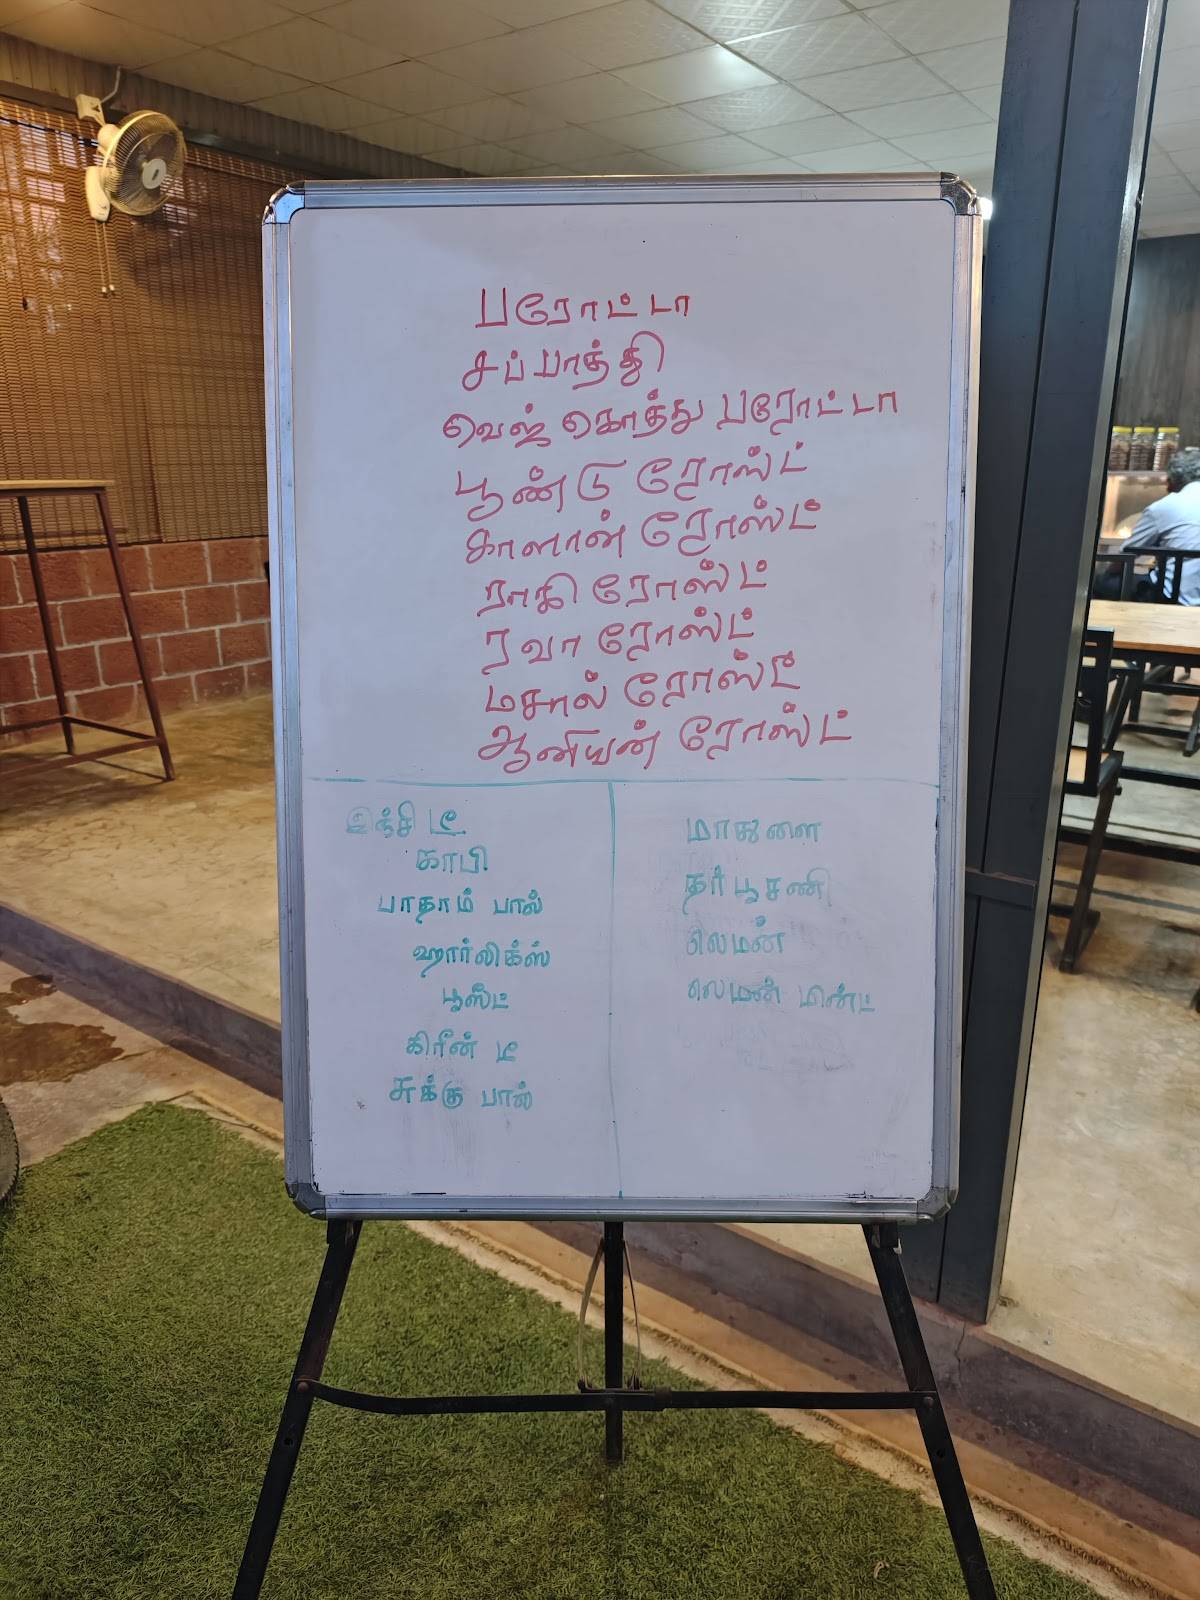 பரோட்டா
சப்பாத்தி
வெஜ் கொத்து பரோட்டா
பூண்டு ரோஸ்ட்
காளான் ரோஸ்ட்
ராகி ரோஸ்ட்
ரவா ரோஸ்ட்
மசால் ரோஸ்ட்
ஆனியன் ரோஸ்ட்
இஞ்சி டீ
காபி
பாதாம் பால்
ஹார்லிக்ஸ்
பூஸ்ட்
கிரீன் டீ
சுக்கு பால்
மாதுளை
தர்பூசணி
லெமன்
லெமன் மின்ட்